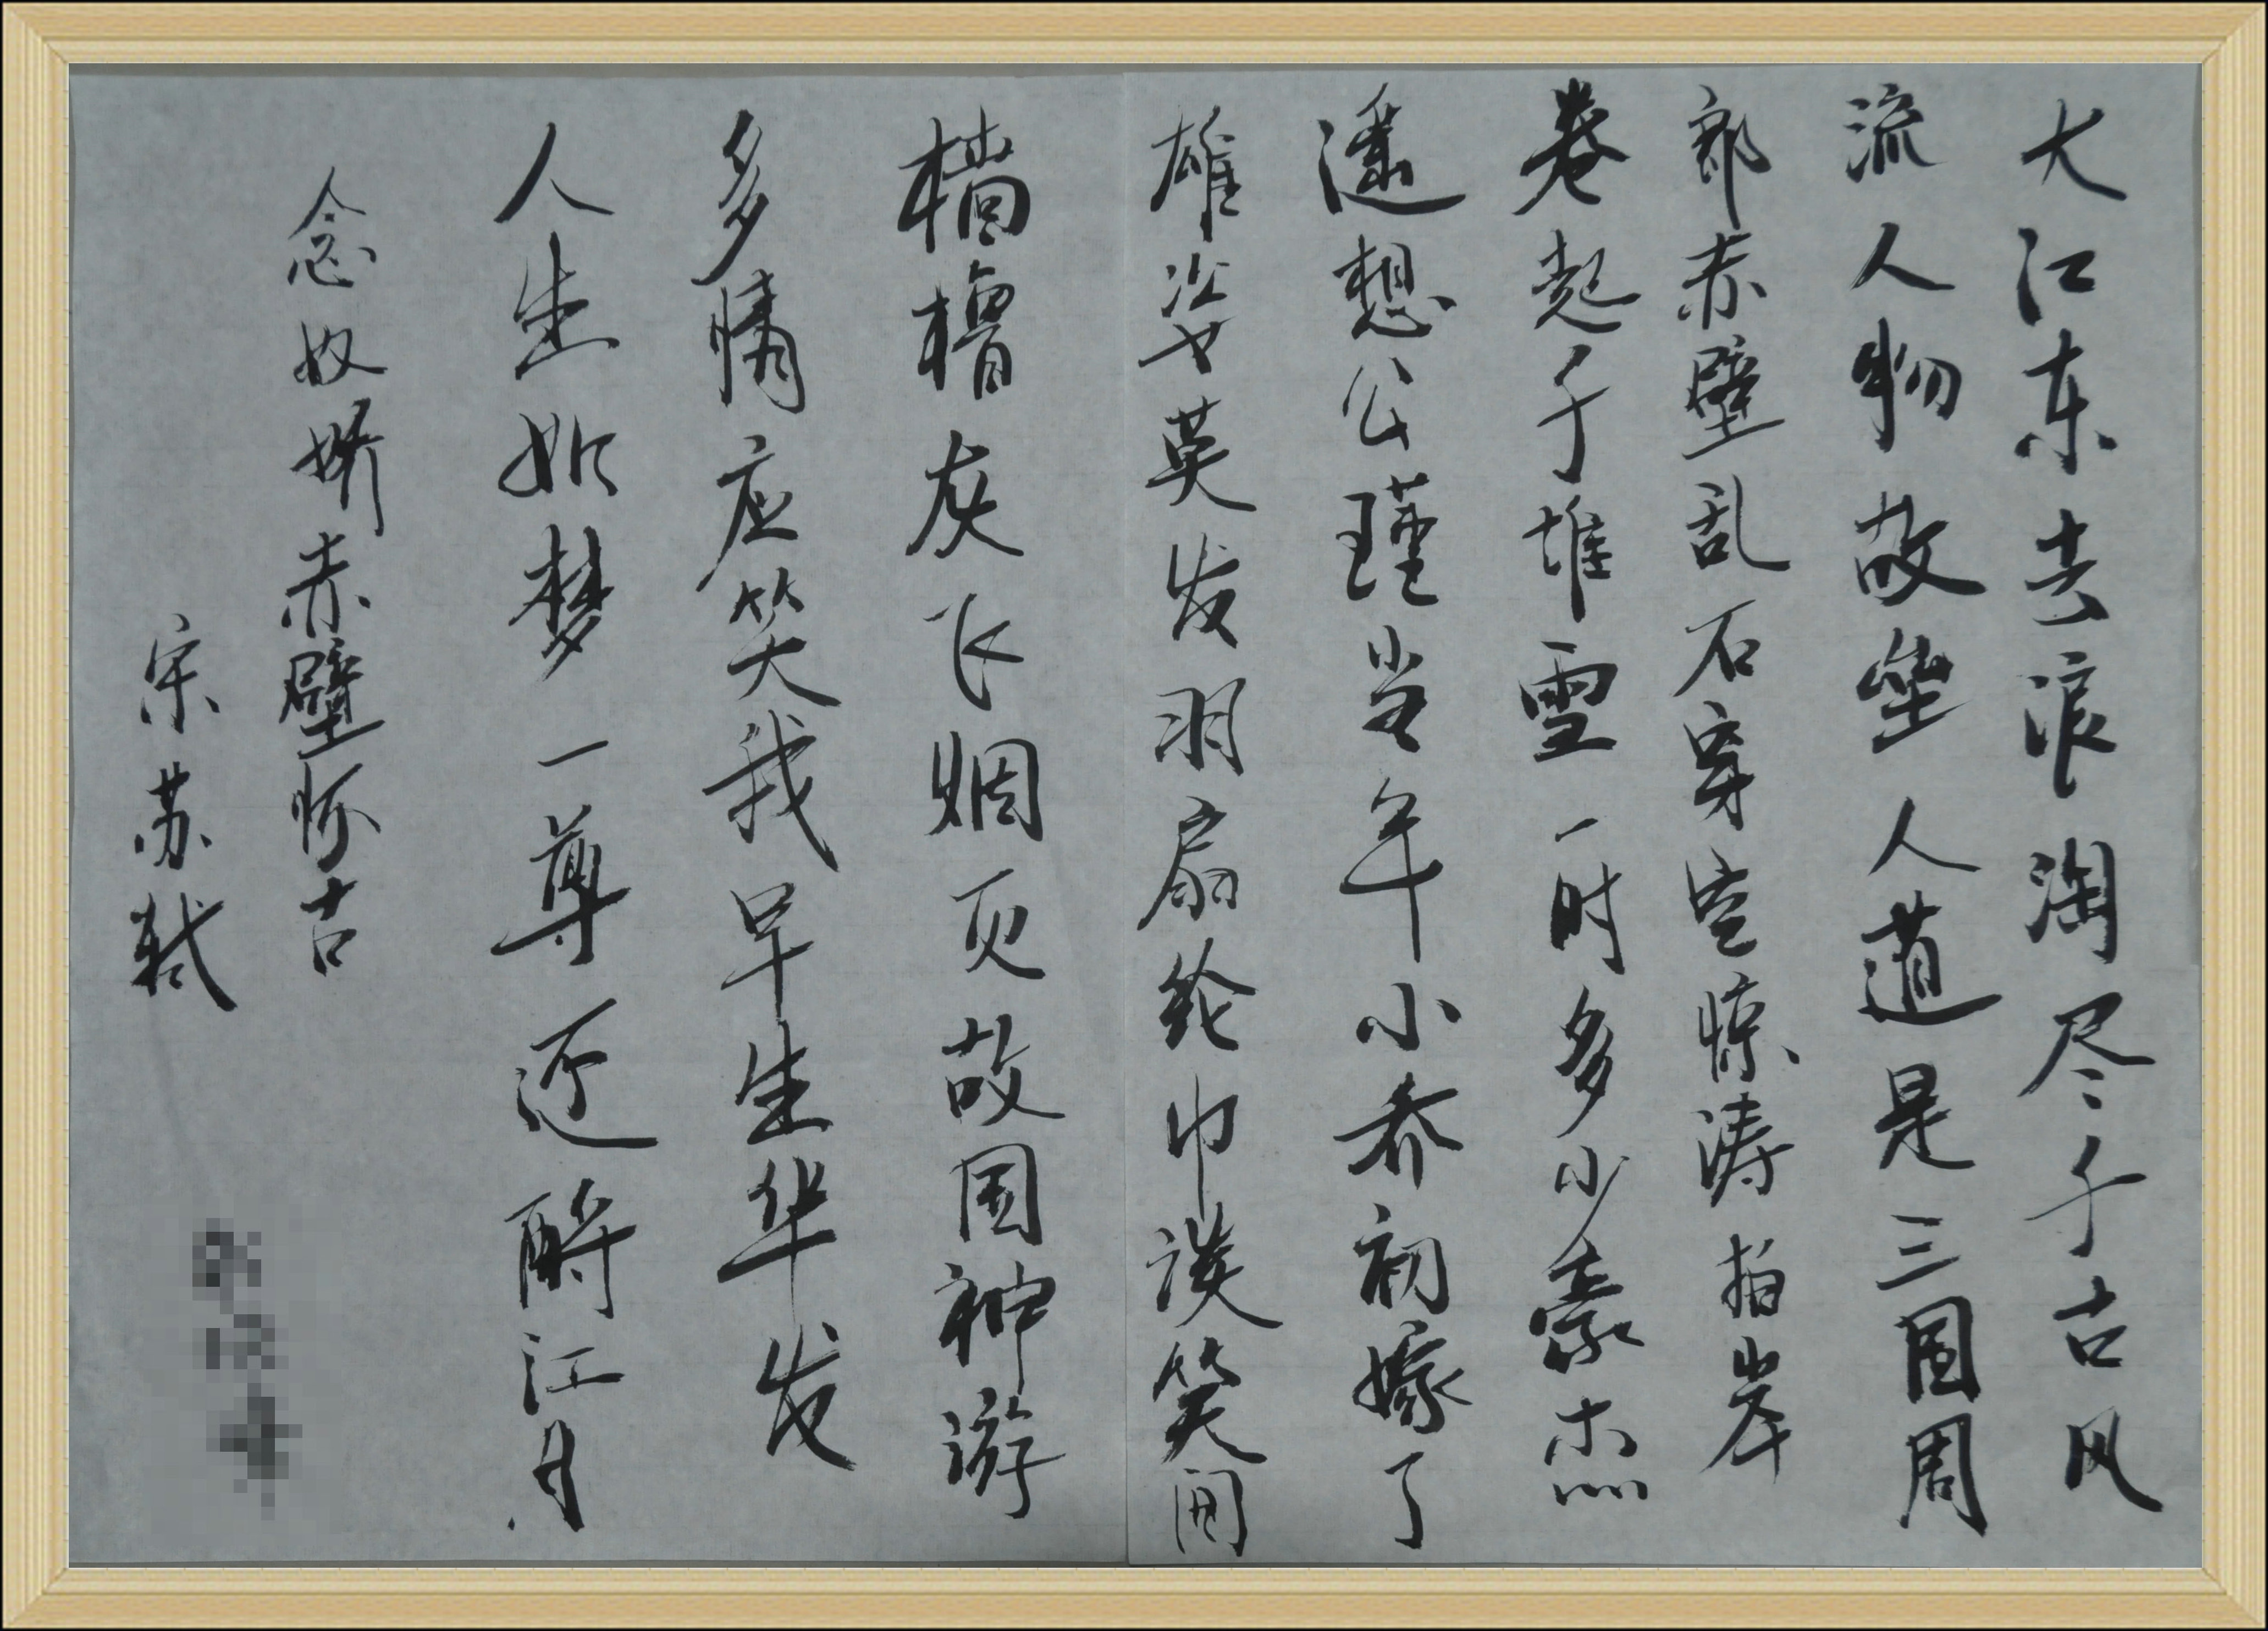 大江东去浪淘尽千古风
流人物故垒人道是三国周
郎赤壁乱石穿空惊涛拍岸
卷起千堆雪一时多少豪杰
遥想公瑾当年小乔初嫁了
雄姿英发羽扇纶巾谈笑间
樯橹灰飞烟灭故国神游
多情应笑我早生华发
人生如梦一尊还酹江月
念奴娇赤壁怀古
宋苏轼